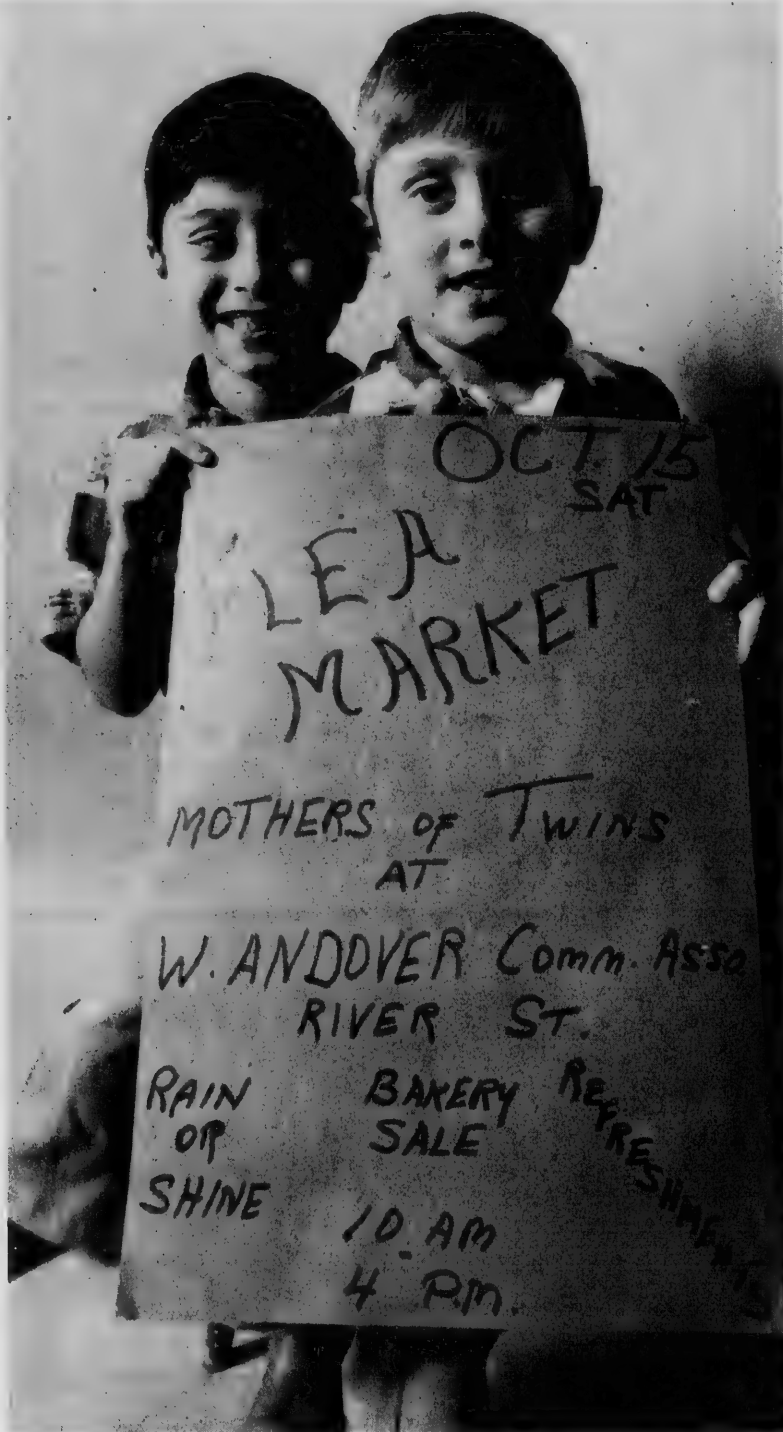 OCT. 15
SAT
LEA
MARKET
MOTHERS OF TWINS
AT
W. ANDOVER Comm. Asso.
RIVER ST.
RAIN
OR
SHINE
BAKERY
SALE
REFRESHMENTS
10 AM
4 P.M.